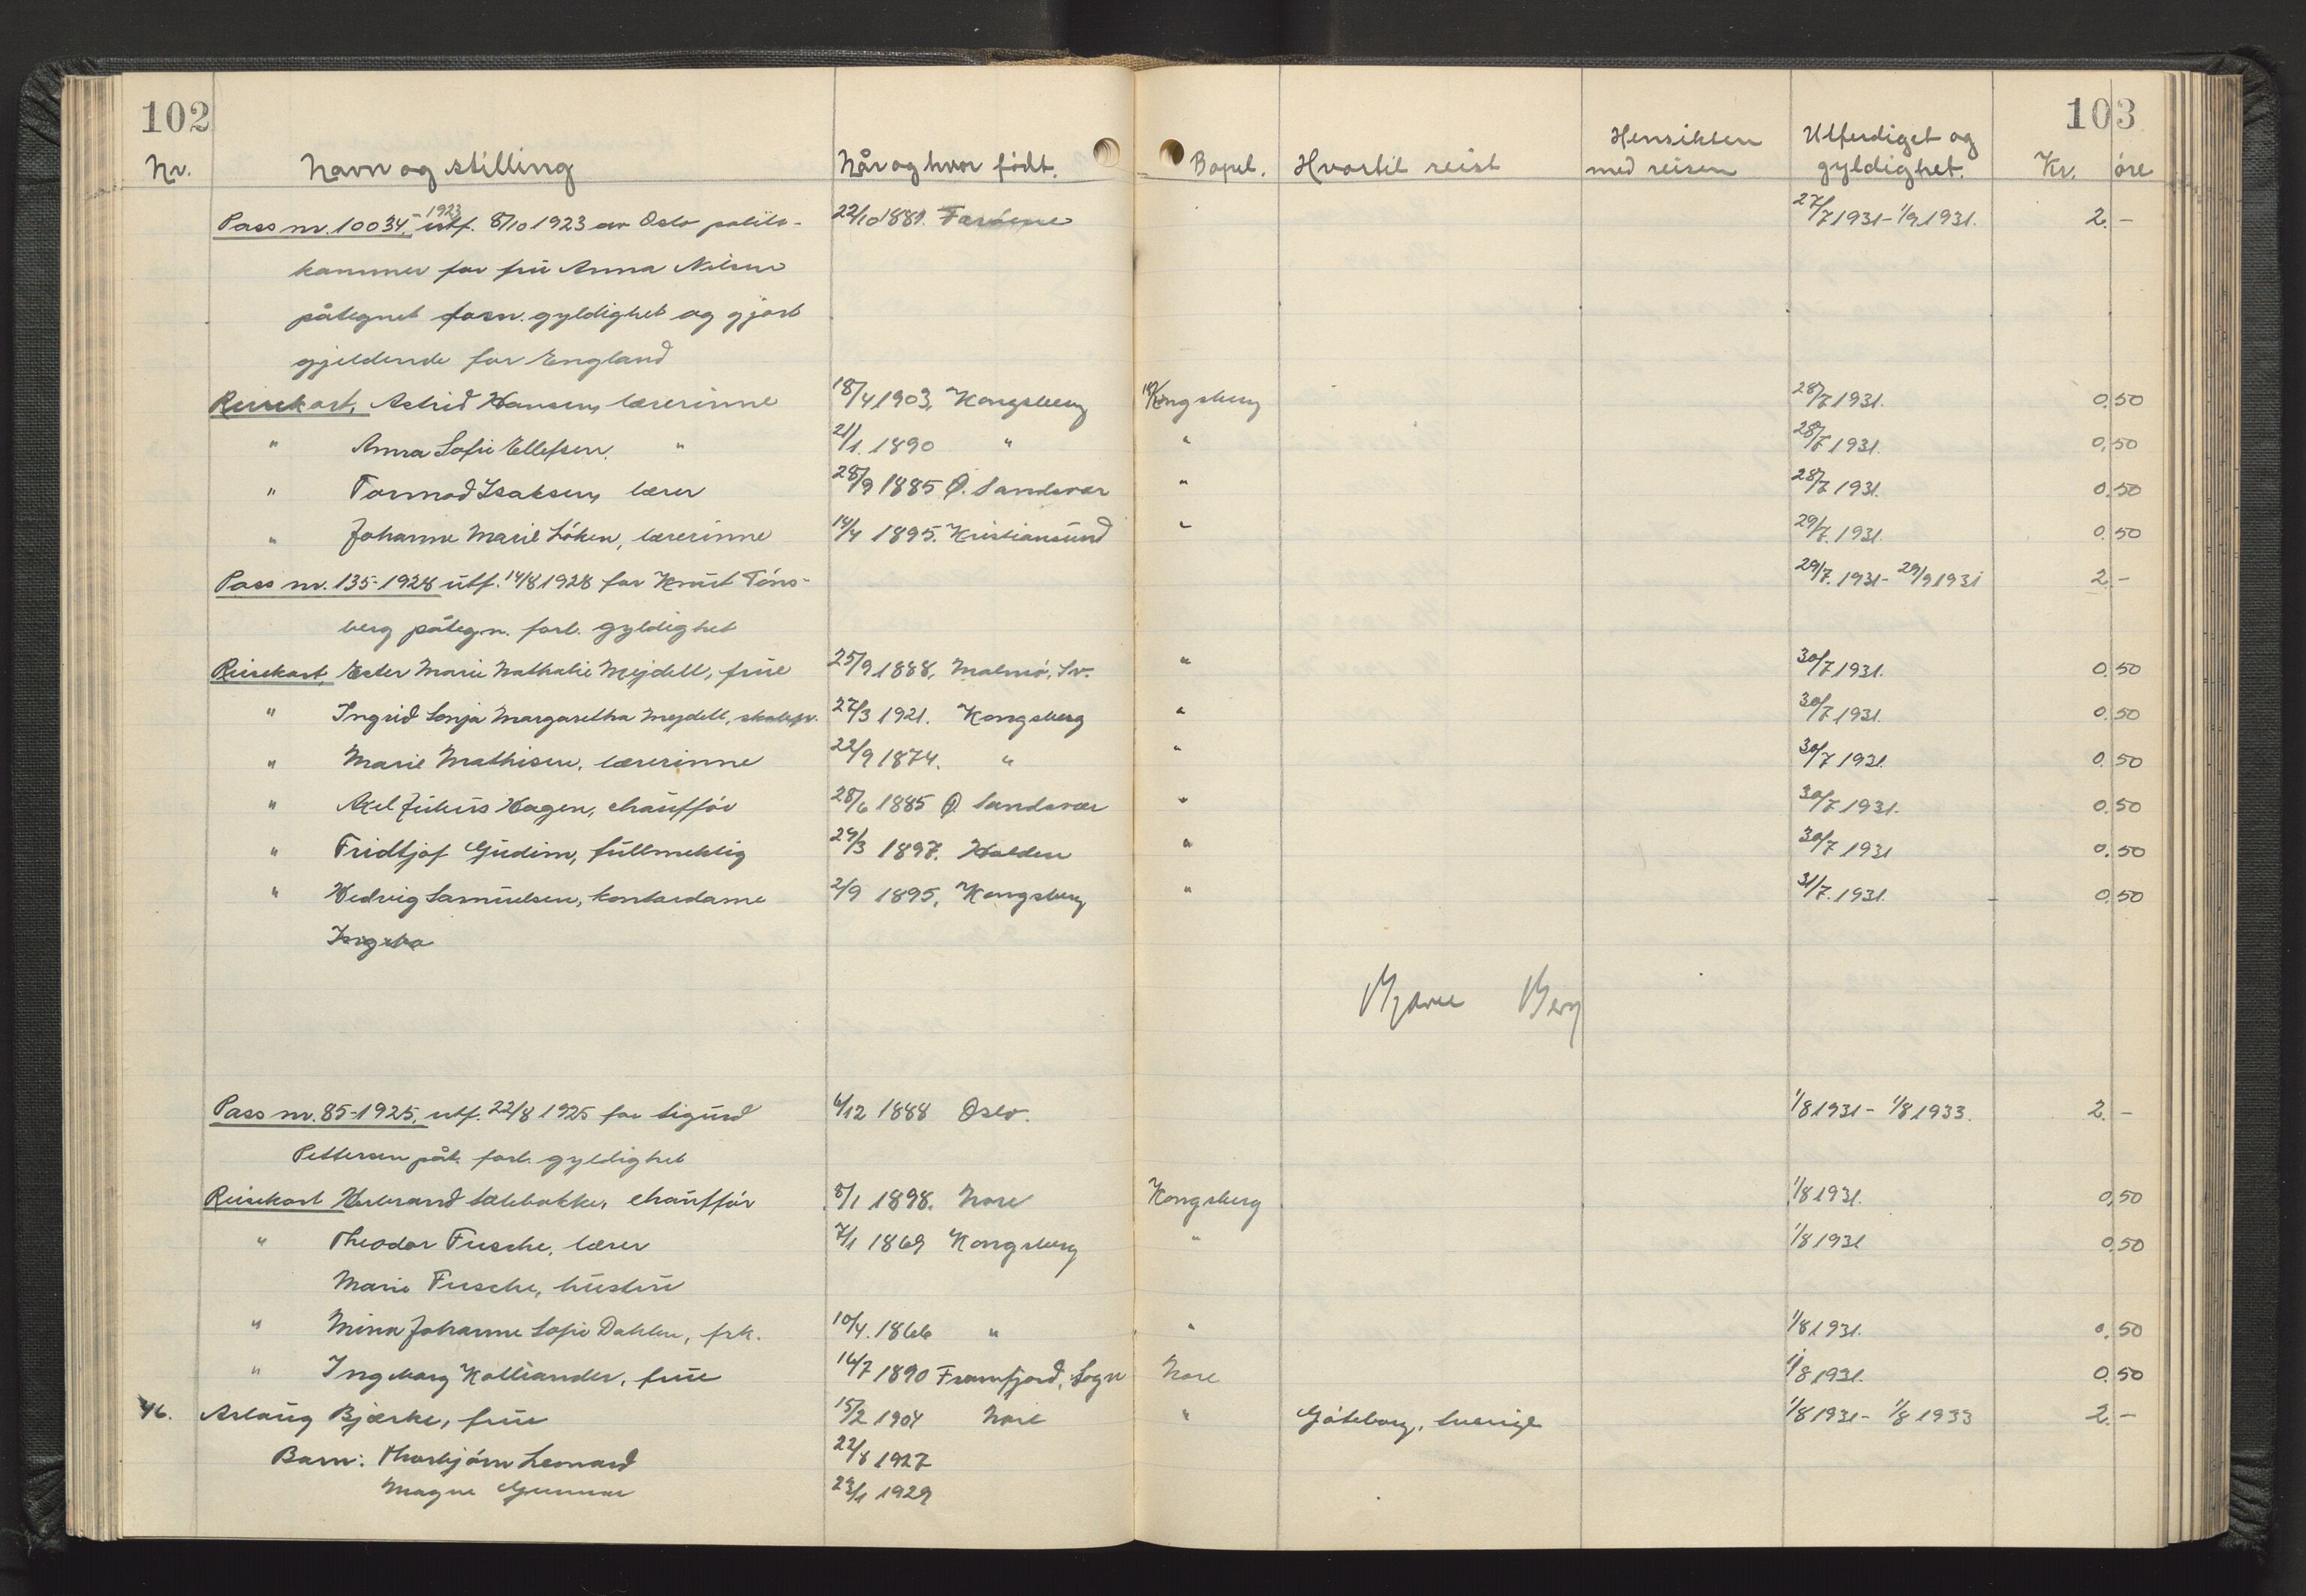 102
103
Nr. Navn og stilling Når og hvor født. Bopel. Hvortil reist Hensikten med reisen Utferdiget og gyldighet. Kr. øre
Pass nr. 10034,-1923 utf. 8/10 1923 av Oslo politi- 22/10 1881. Færøene 27/7 1931 - 1/9 1931. 2. -
kammer for fru Anna Nilsen
påtegnet forn. gyldighet og gjort
gjeldende for England
Reisekort, Astrid Hansen, lærerinne 18/4 1903, Kongsberg Kongsberg 28/7 1931. 0.50
" Anna Sofie Ellefsen, " 21/1. 1890 " " 28/7 1931. 0,50
" Tormod Isaksen, lærer 28/9 1885 Ø. Sandsvær " 28/7 1931. 0.50
" Johanne Marie Løken, lærerinne 14/4 1895. Kristiansund " 29/7. 1931. 0.50
Pass nr. 135-1928 utf. 14/8 1928 for Knut Töns- 29/7. 1931 - 29/9 1931 2. -
berg påtegn. forl. gyldighet
Reisekort, Ester Marie Nathalie Mejdell, frue 25/9 1888, Malmö, Sv. " 30/7 1931. 0.50
" Ingrid Sonja Margaretha Mejdell, skolep. 27/3 1921. Kongsberg " 30/7 1931. 0.50
" Marie Mathisen, lærerinne 22/9 1874. " " 30/7 1931. 0.50
" Axel Julius Hagen, chauffør 28/6 1885 Ø. Sandsvær " 30/7 1931. 0.50
" Fridtjof Gudim, fullmektig 29/3 1897. Halden " 30/7 1931 0.50
" Hedvig Samuelsen, kontordame 2/9 1895, Kongsberg " 31/7. 1931. 0.50
Bjarne Berg
Pass nr. 85-1925, utf. 22/8 1925 for Sigurd 6/12 1888 Oslo. 1/8 1931 - 1/8 1933. 2. -
Pettersen påt. forl. gyldighet
Reisekort Herbrand Sælebakke, chauffør 8/1 1898. Nore Kongsberg 1/8 1931. 0,50
" Theodor Fusche, lærer 7/1 1869 Kongsberg " 1/8 1931 0.50
Marie Fusche, hustru
" Mina Johanne Sofie Dahlen, frk. 10/4. 1866 " " 1/8 1931. 0.50
" Ingeborg Kolliander, frue 16/7 1890 Framfjord, Sogn Nore 1/8 1931. 0.50
46. Aslaug Bjerke, frue 15/2 1904 Nore " Göteborg, Sverige 1/8 1931 - 1/8 1933 2. -
Barn: Thorbjørn Leonard 22/8 1927
Magne Gunnar 23/1 1929